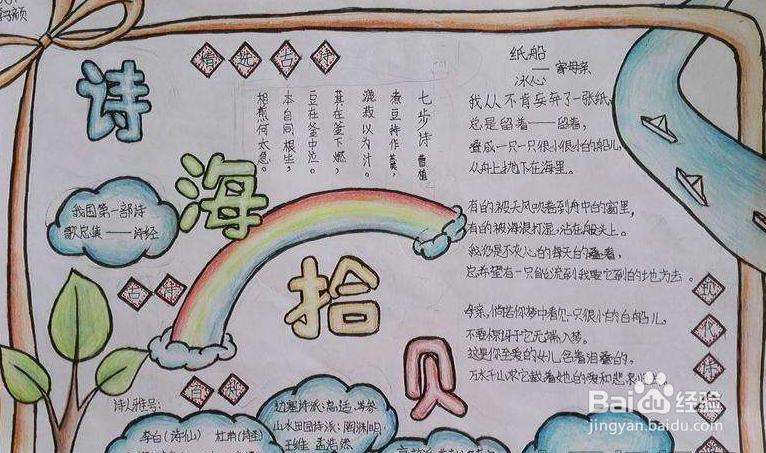 诗
海
拾
贝
精选古诗
七步诗 曹植
煮豆持作羹,
漉菽以为汁。
萁在釜下燃,
豆在釜中泣。
本自同根生,
相煎何太急。
我国第一部诗
歌总集——诗经
诗人雅号:
李白(诗仙)
边塞诗派:高适,岑参
山水田园诗派:陶渊明,
王维 孟浩然
纸船
——寄母亲
冰心
我从不肯妄弃了一张纸,
总是留着——留着,
叠成一只一只很小很小的船儿,
从舟上抛下在海里。
有的被天风吹卷到舟中的窗里,
有的被海浪打湿,沾在船头上。
我仍是不灰心的每天的叠着,
总希望有一只能流到我要它到的地方去。
母亲,倘若你梦中看见一只很小的白船儿,
不要惊讶它无端入梦。
这是你至爱的女儿含着泪叠的,
万水千山求它载着她的爱和悲哀
现代诗
Baidu 经验
jingyan.baidu.com